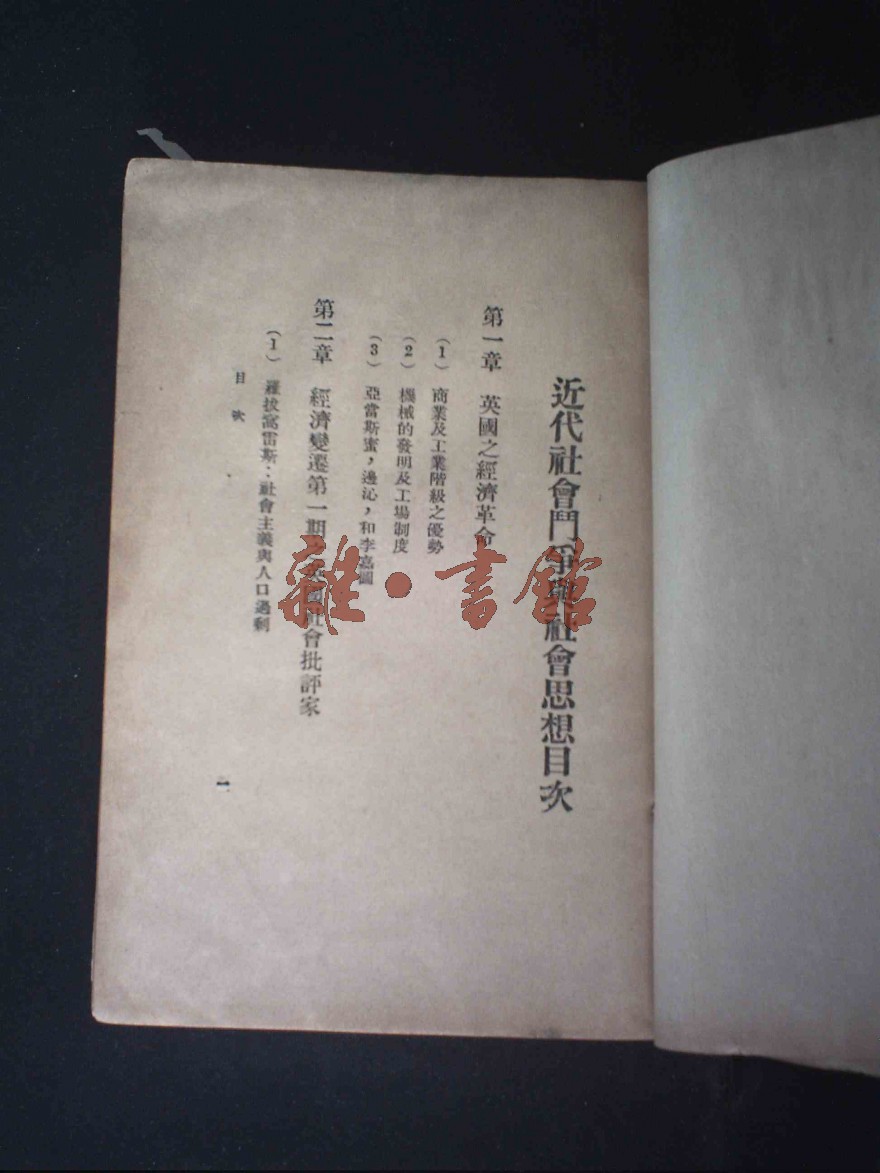 近代社會鬥爭與社會思想目次
第一章 英國之經濟革命
(1) 商業及工業階級之優勢
(2) 機械的發明及工場制度
(3) 亞當斯蜜，邊沁，和李嘉圖
第二章 經濟變遷第一期之英國社會批評家
(1) 羅拔窩雷斯：社會主義與人口過剩
目次
一
雜·書館